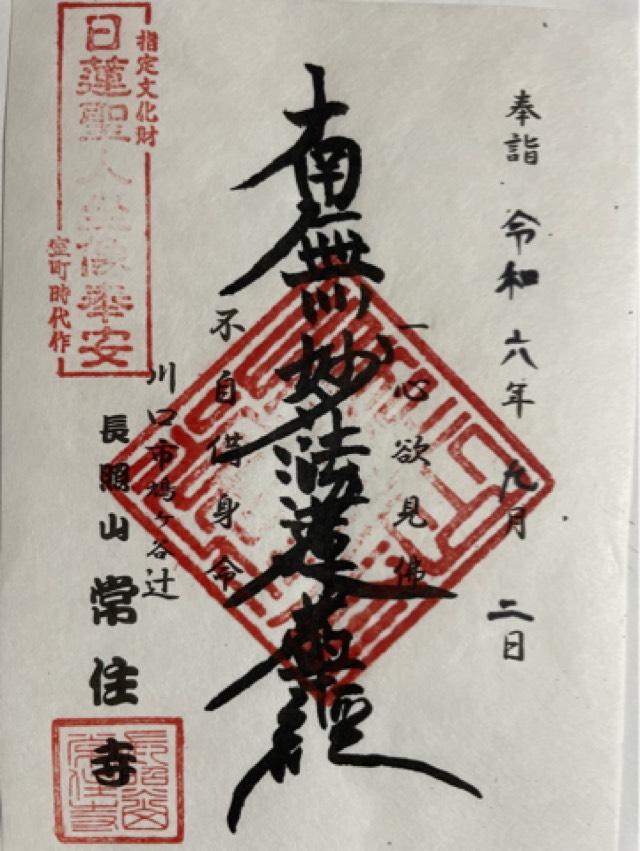 奉詣 令和六年 九月 二日
一心欲見佛
南無妙法蓮華經
不自惜身命
川口市鳩ヶ谷辻
長照山 常住寺
指定文化財
日蓮聖人坐像奉安
室町時代作